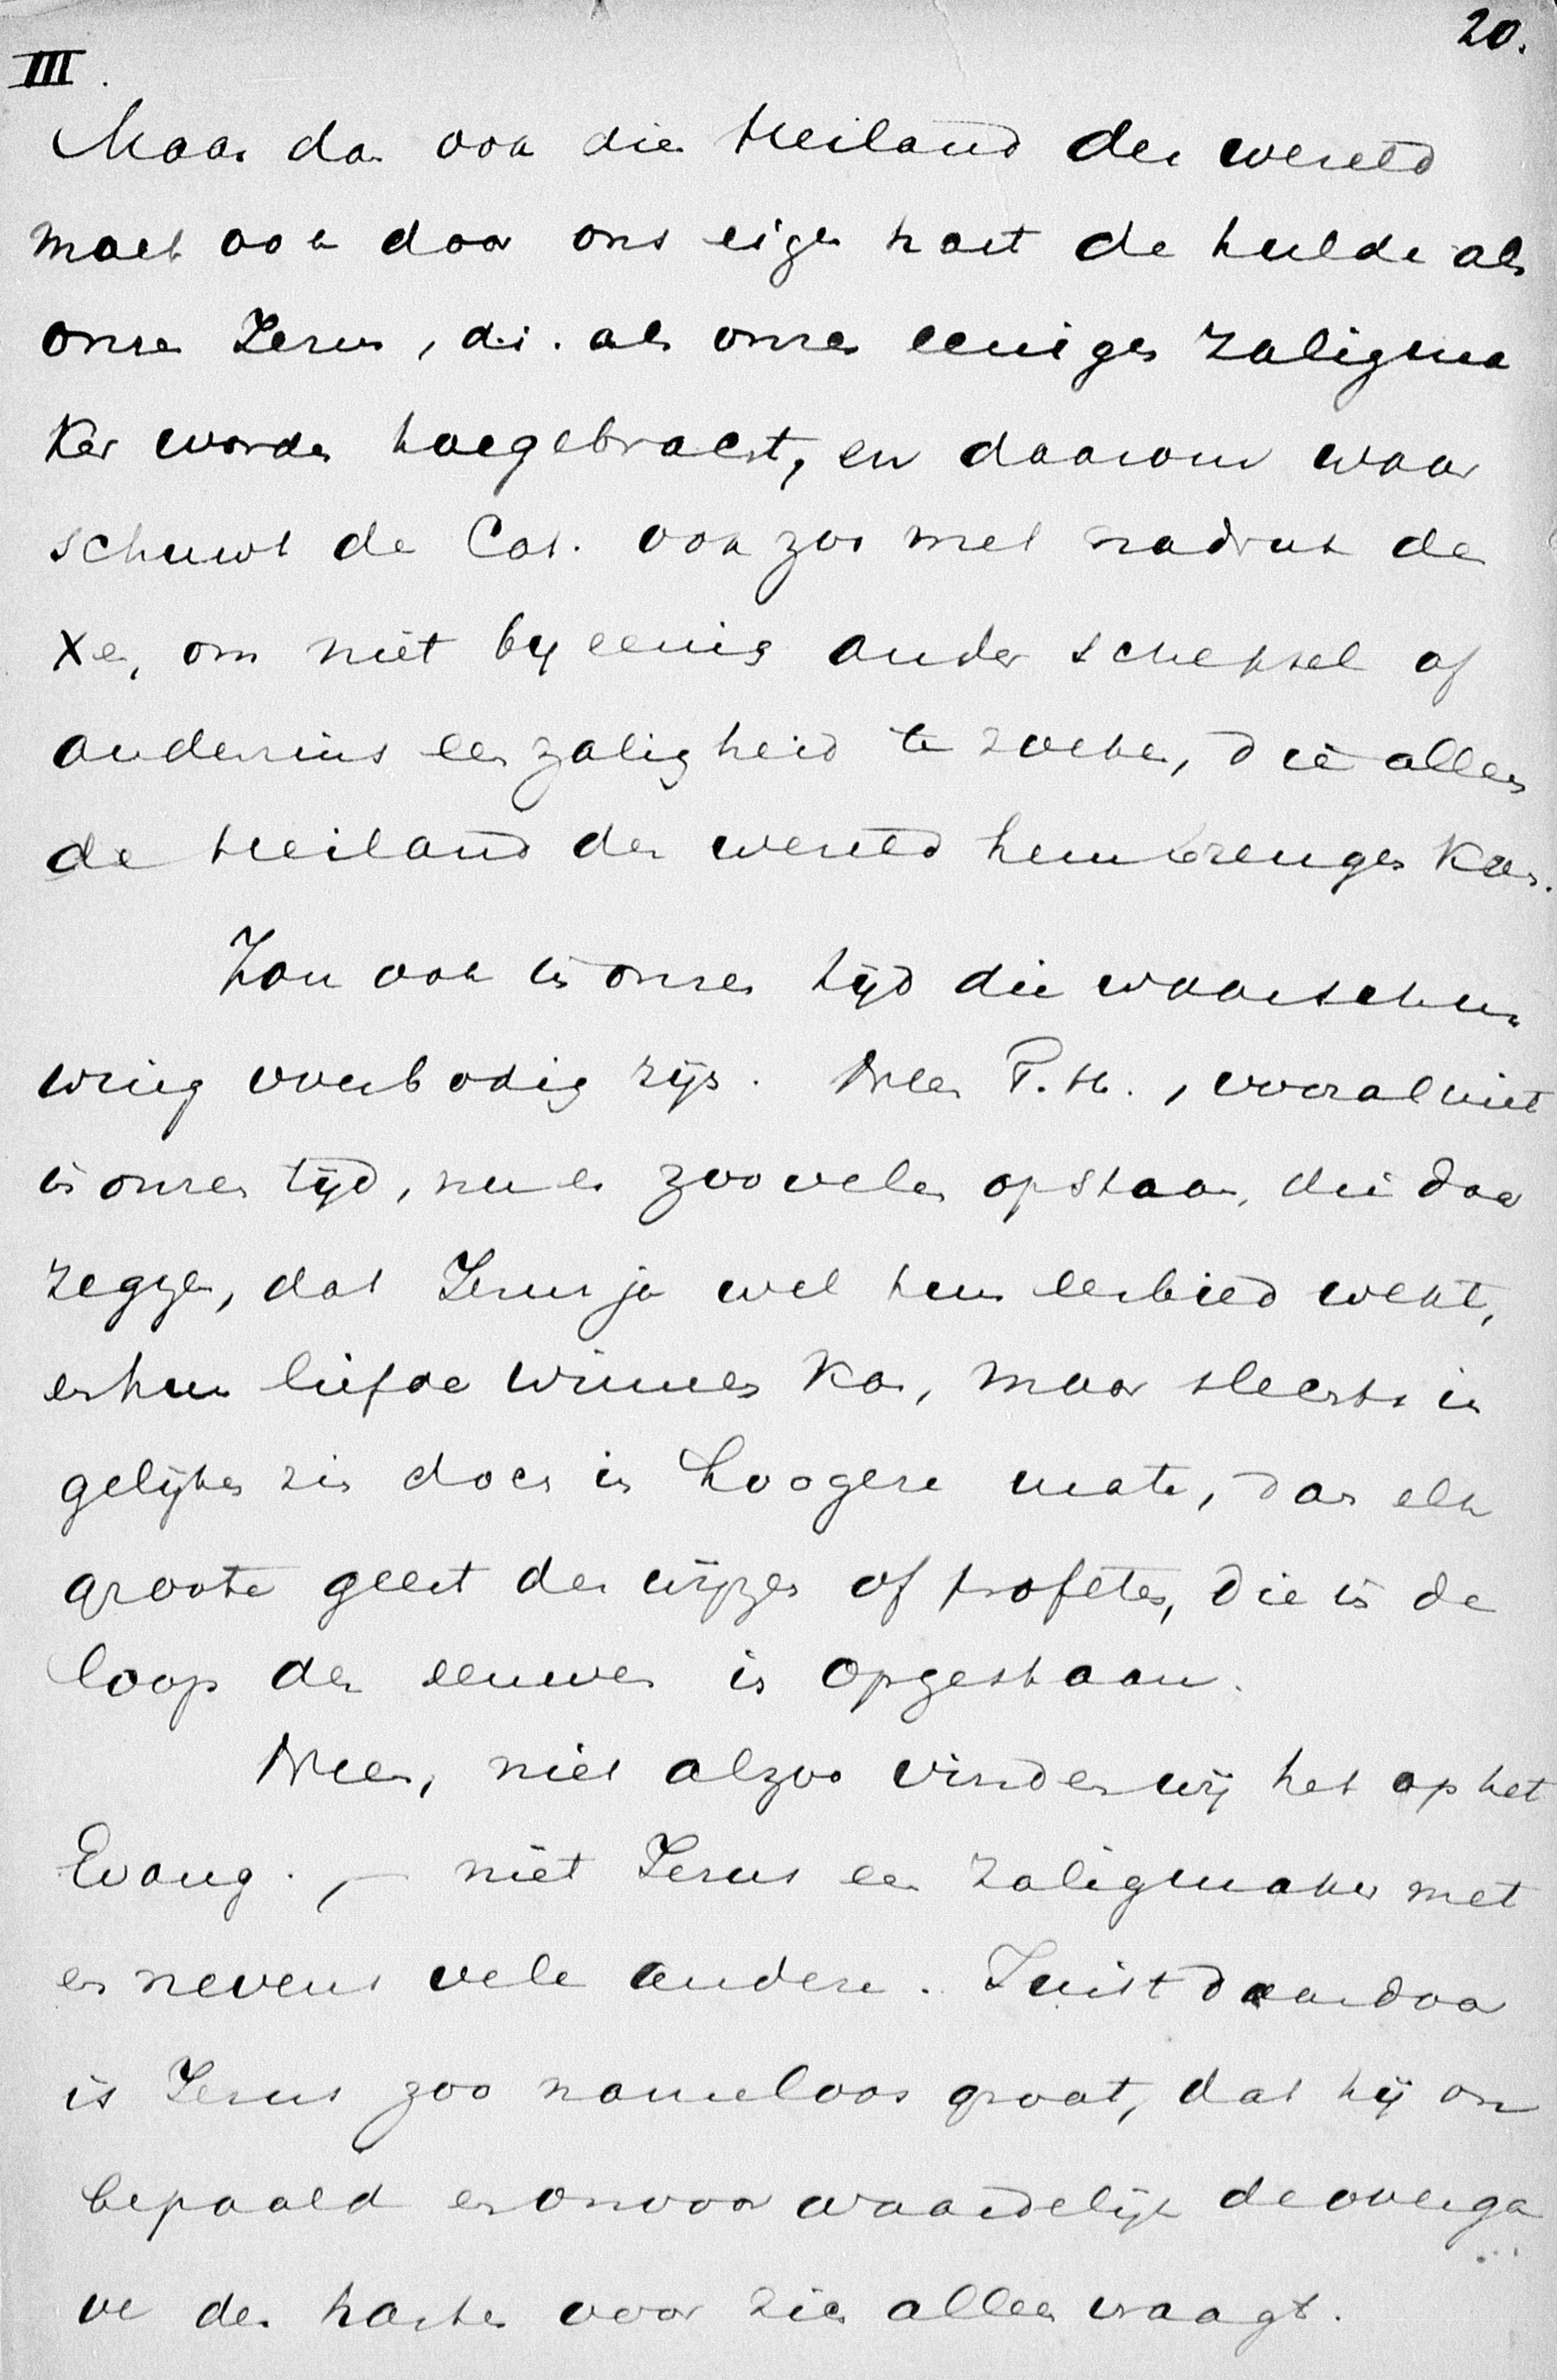 20.
III.
Maar dan ook dien Heiland der wereld
moet ook door ons eigen hart de hulde als
onzen Jezus, d.i. als onzen eenigen Zaligma
ker worden toegebracht, en daarom waar
schuwt de Cat. ook zoo met nadruk den
Xen, om niet bij eenig ander schepsel of
anderzins een zaligheid te zoeken, die alleen
de Heiland der wereld hem brengen kan.
Zou ook in onzen tijd die waarschu
wing overbodig zijn. Neen T.H., vooral niet
in onzen tijd, nu er zoovelen opstaan, die daar
zeggen, dat Jezus ja wel hun eerbied wekt,
en hun liefde winnen kan, maar slechts in
gelijken zin doch in hoogere mate, dan elk
groote geest der wijzen of profeten, die in den
loop der eeuwen is opgestaan.
Neen, niet alzoo vinden wij het op het
Evang. , — niet Jezus een Zaligmaker met
en nevens vele andere. Juist daardoor
is Jezus zoo nameloos groot, dat hij on
bepaald en onvoorwaardelijk de overga
ve der harten voor zich alleen vraagt.